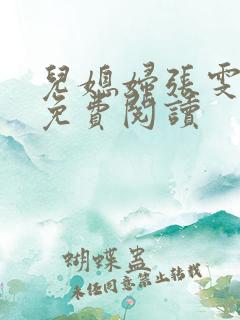 兒媳婦張雯
免費閱讀
蝴蝶蠱
未经同意禁止转载